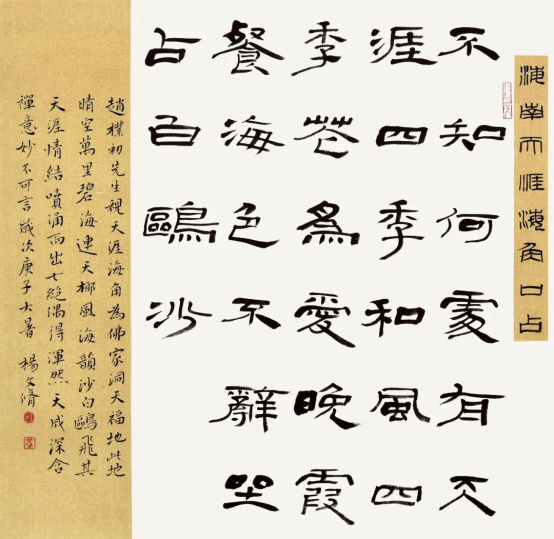 海南天涯海角口占
不知何處有天
涯四季和風四
季花爲愛晚霞
餐海色不辭坐
占白鷗沙
趙樸初先生視天涯海角為佛家洞天福地此地
晴空萬里碧海連天椰風海韻沙白鷗飛其
天涯情結噴涌而出七絕偶得渾然天成深含
禪意妙不可言歲次庚子大暑 楊文脩